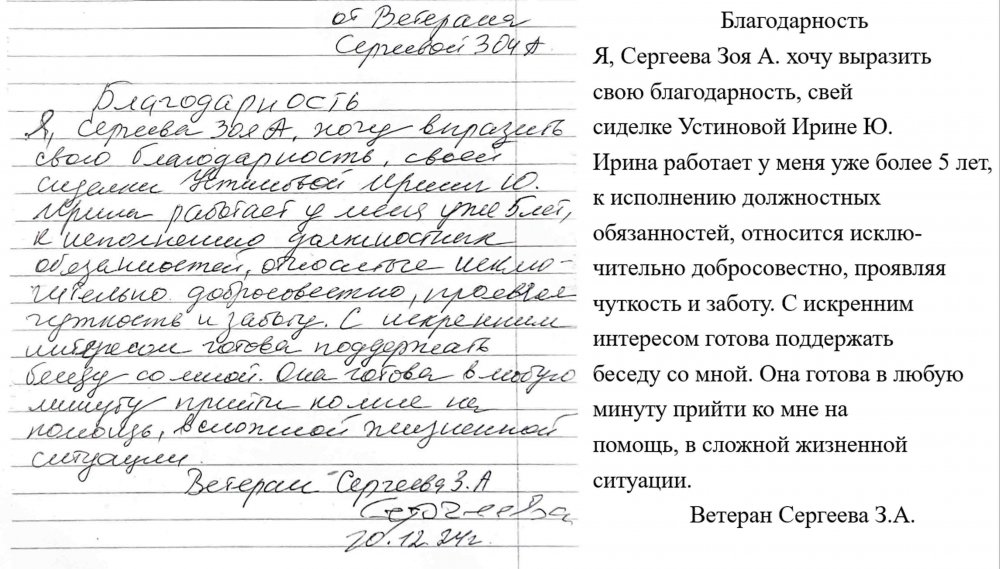 от Ветерана
Сергеевой ЗОИ А
Благодарность
Я, Сергеева Зоя А, хочу выразить
свою благодарность, своей
сиделки Устиновой Ирине Ю.
Ирина работает у меня уже 5 лет,
к исполнению должностных
обезанностей, относиться исклю-
чительно добросовестно, проявляя
чуткость и заботу. С искренним
интересом готова поддержать
беседу со мной. Она готова в любую
минуту прийти ко мне на
помощь, в сложной жизненной
ситуации.
Ветеран Сергеева З.А
Сергеева
20.12.24г.
Благодарность
Я, Сергеева Зоя А. хочу выразить
свою благодарность, свей
сиделке Устиновой Ирине Ю.
Ирина работает у меня уже более 5 лет,
к исполнению должностных
обязанностей, относится исклю-
чительно добросовестно, проявляя
чуткость и заботу. С искренним
интересом готова поддержать
беседу со мной. Она готова в любую
минуту прийти ко мне на
помощь, в сложной жизненной
ситуации.
Ветеран Сергеева З.А.